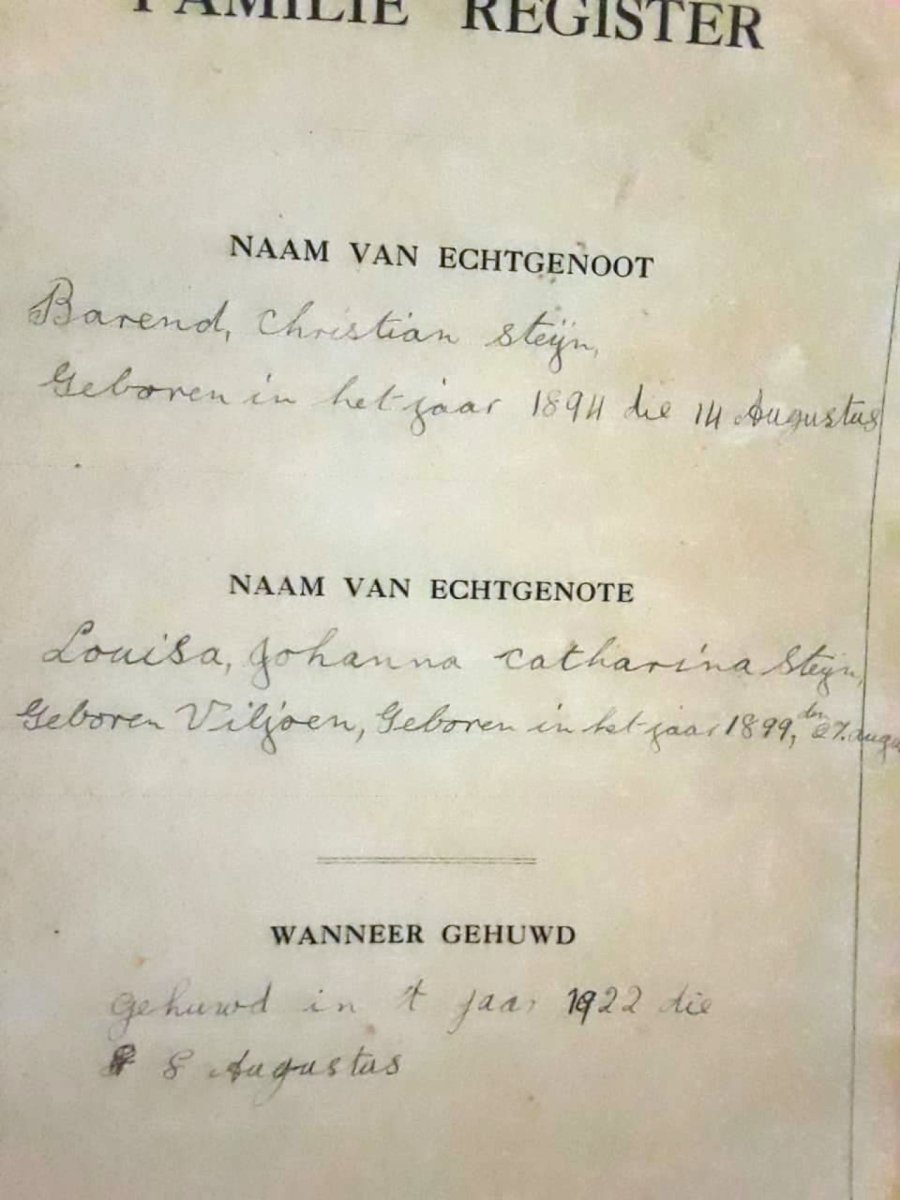 FAMILIE REGISTER
NAAM VAN ECHTGENOOT
Barend, Christian Steijn,
Geboren in het jaar 1894 die 14 Augustus
NAAM VAN ECHTGENOTE
Louisa, Johanna Catharina Steijn,
Geboren Viljoen, Geboren in het jaar 1899, den 27. augu
WANNEER GEHUWD
gehuwd in 't jaar 1922 die
8 Augustus